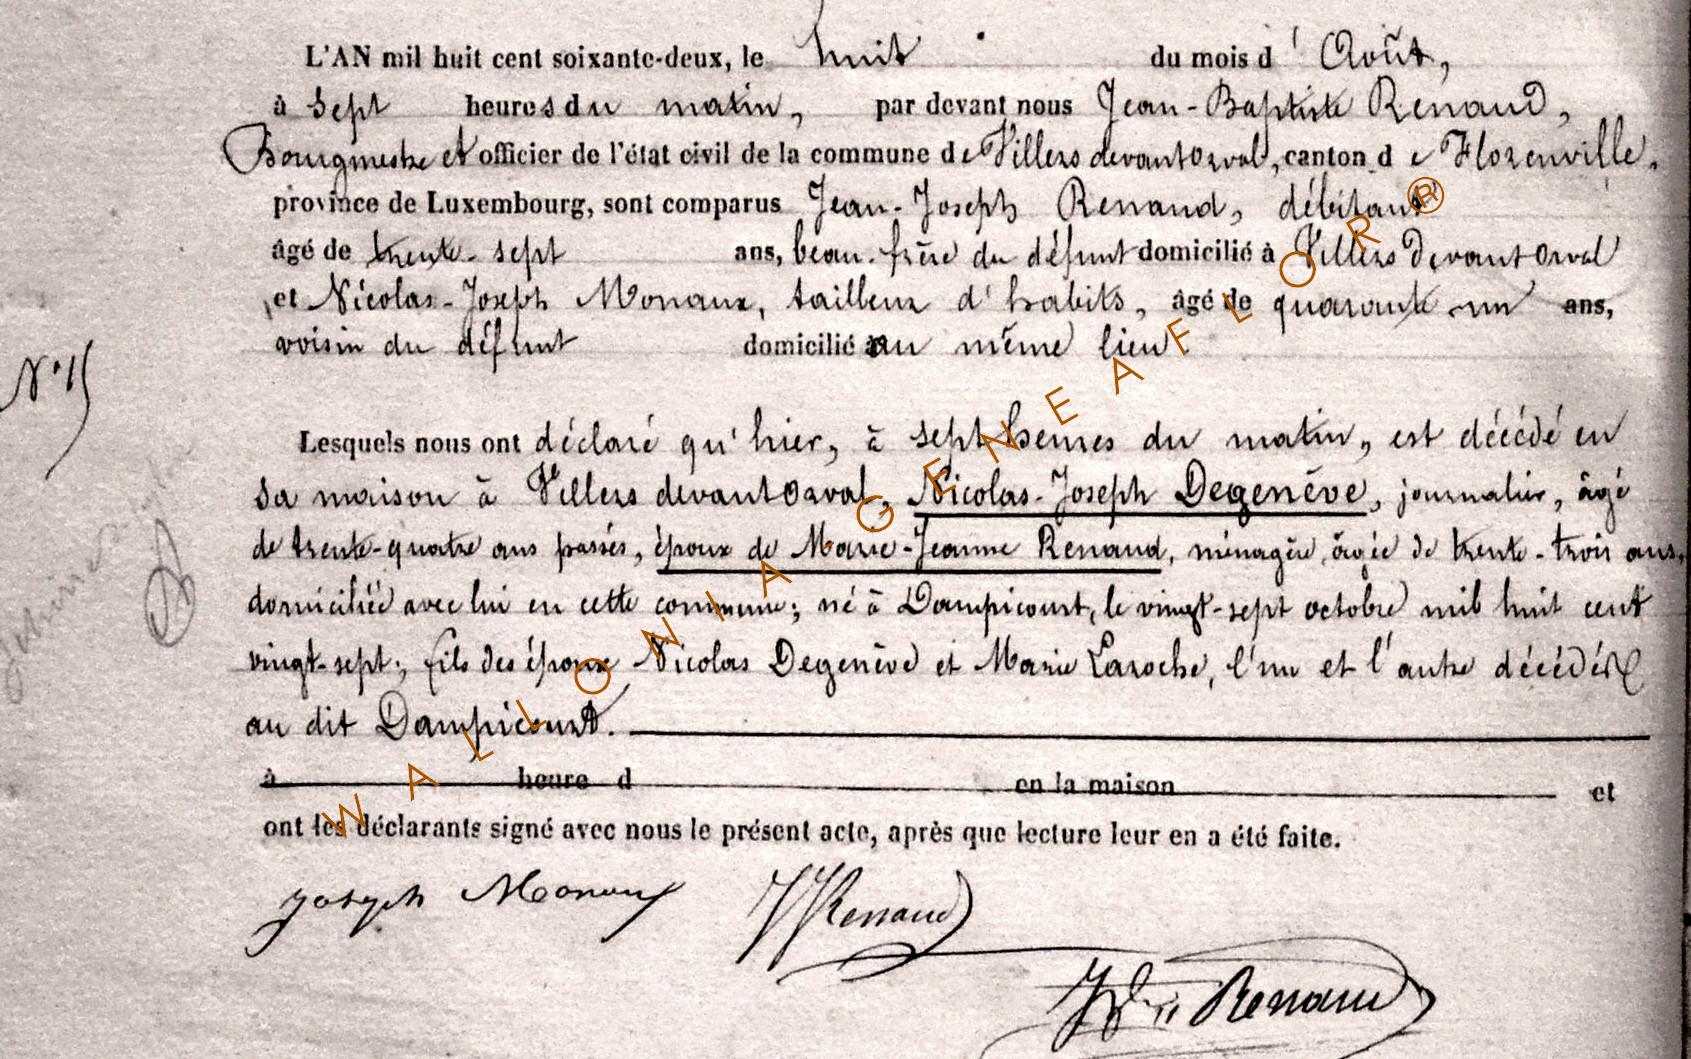 L'AN mil huit cent soixante-deux, le huit du mois d'Août,
à sept heures du matin, par devant nous Jean-Baptiste Renaud,
Bourgmestre et officier de l'état civil de la commune de Villers devant Orval, canton de Florenville,
province de Luxembourg, sont comparus Jean-Joseph Renaud, débitant
âgé de trente-sept ans, beau-frère du défunt domicilié à Villers Devant Orval
et Nicolas-Joseph Monaux, tailleur d'habits, âgé de quarante un ans,
voisin du défunt domicilié au même lieu
N° 15
Lesquels nous ont déclaré qu'hier, à sept heures du matin, est décédé en
sa maison à Villers devant Orval, Nicolas-Joseph Degenève, journalier, âgé
de trente-quatre ans passés, époux de Marie-Jeanne Renaud, ménagère, âgée de trente-trois ans,
domiciliée avec lui en cette commune; né à Dampicourt, le vingt-sept octobre mil huit cent
vingt-sept; fils des époux Nicolas Degenève et Marie Laroche, l'un et l'autre décédés
au dit Dampicourt.
à heure d en la maison et
ont les déclarants signé avec nous le présent acte, après que lecture leur en a été faite.
Joseph Monaux JJRenaud
JBte Renaud
WALLONIA GENEAFLOR ®